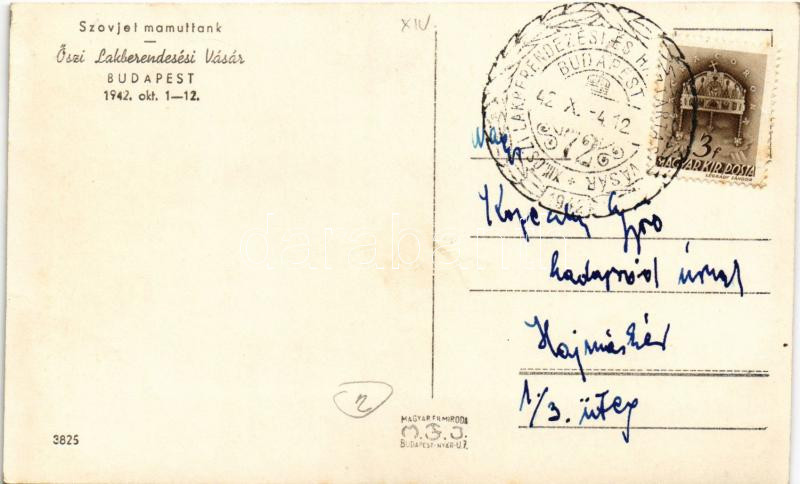 Szovjet mamuttank
Őszi Lakberendesési Vásár
BUDAPEST
1942. okt. 1—12.
XIV.
ŐSZI LAKBERENDEZÉSI ÉS
VÁSÁR
BUDAPEST
42 X. -4. 12
3f
MAGYAR KIR. POSTA
LÉGRÁDY SÁNDOR
Nagys
Győző
hadapród úrnak
Hajmáskér
1./3. üteg
n
MAGYAR FILMIRODA
M.F.I.
BUDAPEST-NYÁR-U.7.
3825